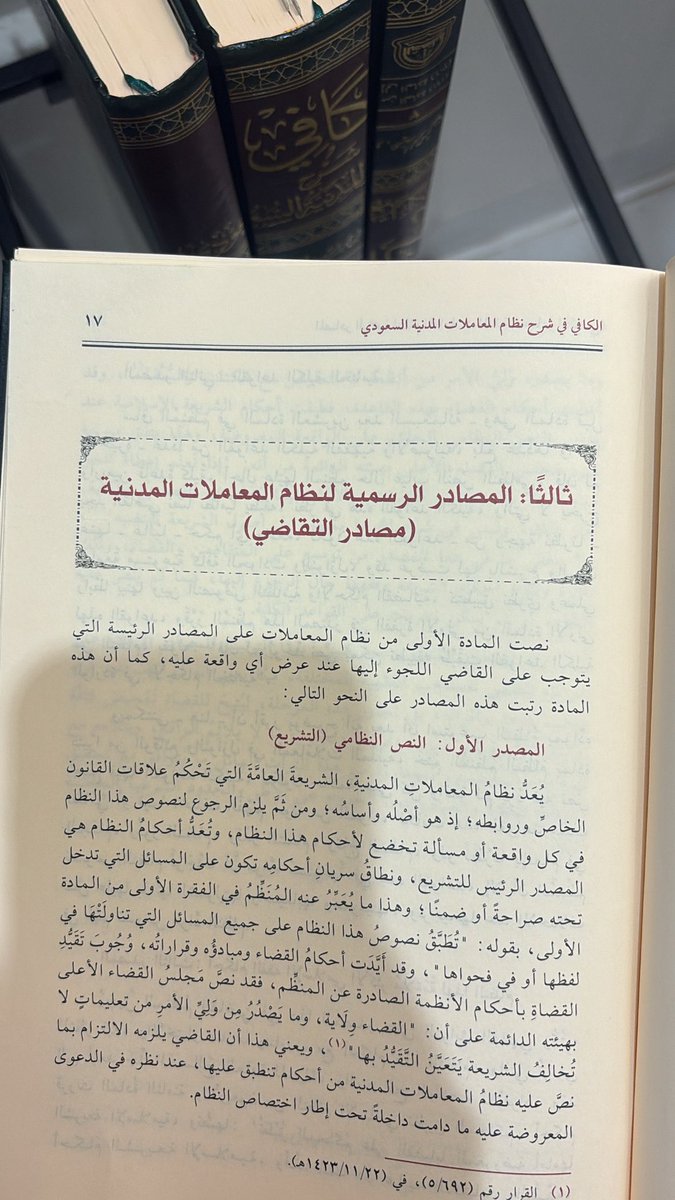 كافي
شرح
الكافي في شرح نظام المعاملات المدنية السعودي
١٧
ثالثًا: المصادر الرسمية لنظام المعاملات المدنية
(مصادر التقاضي)
نصت المادة الأولى من نظام المعاملات على المصادر الرئيسة التي
يتوجب على القاضي اللجوء إليها عند عرض أي واقعة عليه، كما أن هذه
المادة رتبت هذه المصادر على النحو التالي:
المصدر الأول: النص النظامي (التشريع)
يُعَدُّ نظامُ المعاملاتِ المدنيةِ، الشريعةَ العامَّةَ التي تَحْكُمُ علاقات القانون
الخاصِّ وروابطه؛ إذ هو أصْلُه وأساسُه؛ ومن ثَمَّ يلزم الرجوع لنصوص هذا النظام
في كل واقعة أو مسألة تخضع لأحكام هذا النظام، وتُعَدُّ أحكامُ النظام هي
المصدر الرئيس للتشريع، ونطاقُ سريانِ أحكامِه تكون على المسائل التي تدخل
تحته صراحةً أو ضمنًا؛ وهذا ما يُعَبِّرُ عنه المُنَظِّمُ في الفقرة الأولى من المادة
الأولى، بقوله: "تُطَبَّقُ نصوصُ هذا النظام على جميع المسائل التي تناولَتْهَا في
لفظها أو في فحواها"، وقد أَيَّدَت أحكامُ القضاء ومبادؤُه وقراراتُه، وُجُوبَ تَقَيُّدِ
القضاةِ بأحكام الأنظمة الصادرة عن المنظِّم، فقد نصَّ مَجلسُ القضاء الأعلى
بهيئته الدائمة على أن: "القضاء ولَاية، وما يَصْدُرُ مِن وَلِيِّ الأمرِ من تعليماتٍ لا
تُخالِفُ الشريعة يَتَعَيَّنُ التَّقَيُّدُ بها"(١)، ويعني هذا أن القاضي يلزمه الالتزام بما
نصَّ عليه نظامُ المعاملات المدنية من أحكام تنطبق عليها، عند نظره في الدعوى
المعروضة عليه ما دامت داخلةً تحت إطار اختصاص النظام.
(١) القرار رقم (٥/٦٩٢)، في (١٤٢٣/١١/٢٢هـ).